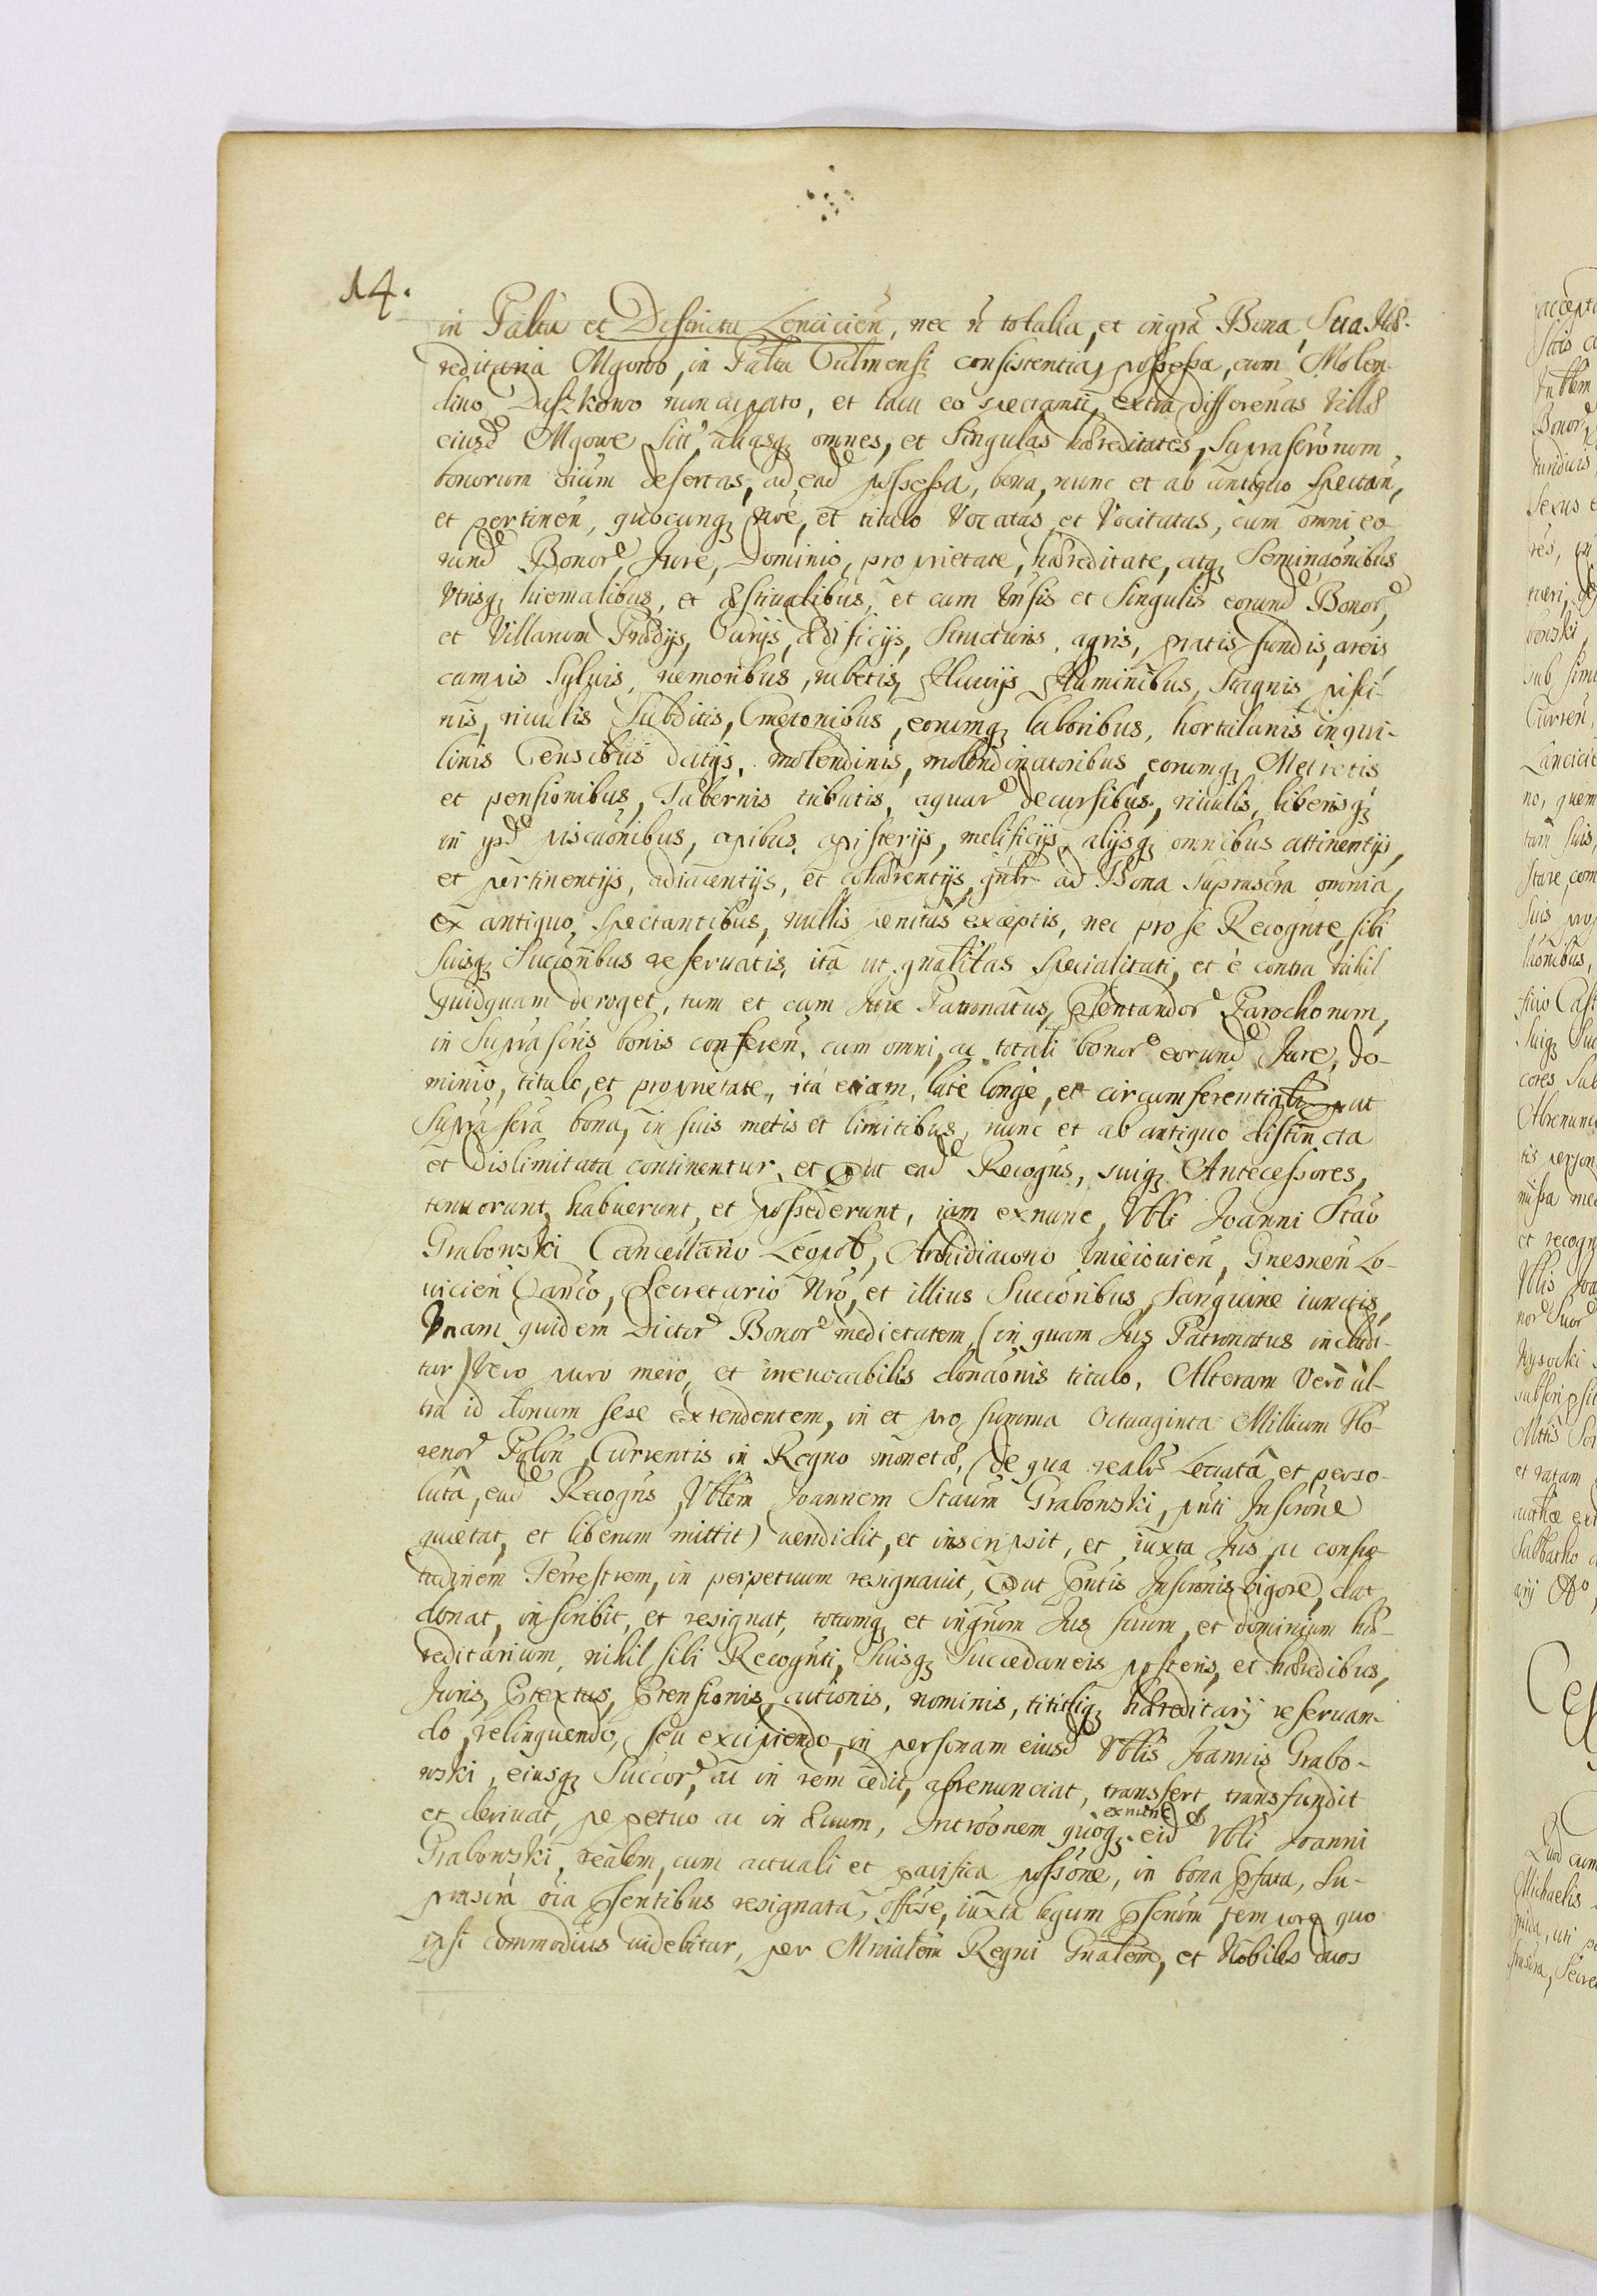 14.
in Paltu et Districtu Lencicień, nec ñ totalia, et ingrã Bona, Sua Hæ-
reditaria Mgowo, in Paltu Culmensi consistentia, possessa, cum Molen-
dino Daszkowo nuncupato, et lacu eo spectanti, extra differenas Villæ
eiusd Mgowe sitt, aliasq; omnes, et Singulas hæreditates, Suprascronom,
bonorum oium desertas, ad ead possessa, bona, nunc et ab antiquo Spectań,
et pertineń, quocunq; iure, et titulo Vocatas et Vocitatas, cum omni eo-
rund Bonor Jure, Dominio, proprietate, hæreditate, atq; Seminaõnibus
Vtrisq; hiemalibus, et Æstiualibus, et cum Vnsis et Singulis eorund Bonor,
et Villarum Prædijs, Curijs, ædificijs, Structuris, agris, pratis fundis, areis,
campis Syluis, nemoribus, rubetis, Fluuijs Fluminibus, Stagnis, pisci-
nis, riuulis Subditis, Cmetonibus, eorumq; laboribus, hortulanis inqui-
linis Censibus datijs, molendinis, molendinatoribus, eorumq; Metretis
et pensionibus, Tabernis tributis, aquar decursibus, riuulis, liberisq;
in ysd piscaõnibus, apibus, apisterijs, melificijs, alijsq; omnibus attinentijs,
et pertinentijs, adiacentijs, et cohærentijs, gnlr ad Bona Suprascra omnia,
ex antiquo, spectantibus, nullis penitus exceptis, nec pro se Recognte, sibi
suisq; Succõribus reseruatis, ita ut gnalitas Specialitati, et è contra nihil
quidquam deroget, tum et cum Jure Patronatus, Psentandor Parochorum,
in Suprascris bonis confereń, cum omni, ac totali bonor eorund Jure, do-
minio, titulo, et proprietate, ita etiam, late longe, et circumferentialr put
Suprascra bona, in suis metis et limitibus, nunc et ab antiquo distincta
et dislimitata continentur, et put ead Recogns, suiq; Antecessores,
tenuerunt, habuerunt, et possederunt, iam exnunc, Vbli Joanni Stao
Grabowski Cancellario Leopol, Archidiacono Vnieiouień, Gnesneń Lo-
uicień Canco, Secretario Nro, et illius Succõribus, Sanguine iunctis,
Vnam quidem Dictor Bonor medietatem, (in quam Jus Patronatus includi-
tur) Vero puro mero, et irreuocabilis donaõnis titulo, Alteram Vero ul-
tra id donum sese extendentem, in et pro summa Octuaginta Millium Flo-
renor Polon Currentis in Regno monetæ, (de qua realr Leuata, et perso-
luta, ead Recogns, Vblem Joannem Staum Grabowski, pnti Inscrone
quietat, et liberum mittit) uendidit, et inscripsit, et iuxta Jus, ac consue-
tudinem Terrestrem, in perpetuum resignauit, put Pntis Inscronis vigore, dat
donat, inscribit, et resignat, totumq; et ingrum Jus suum, et dominium hæ-
reditarium, nihil sibi Recognti, Suisq; Succedaneis posteris, et hæredibus,
Juris, Ptextus, Ptensionis, actionis, nominis, tituliq; hæreditarij reseruan-
do, relinquendo, seu excipiendo, in personam eiusd Vblis Joannis Grabo-
wski, eiusq; Succor, ac in rem cedit, abrenunciat, transfert, transfundit
et deriuat, pepetuo ac in Æuum, Introõnem quoq; exnunc eid Vbli Joanni
Grabowski, realem, cum actuali et pacifica possone, in bona Pfata, Su-
prascra oia Psentibus resignata, offise, iuxta legum Pscrum, tempore quo
ipsi commodius uidebitur, per Mnialem Regni Gnalem, et Nobiles duos